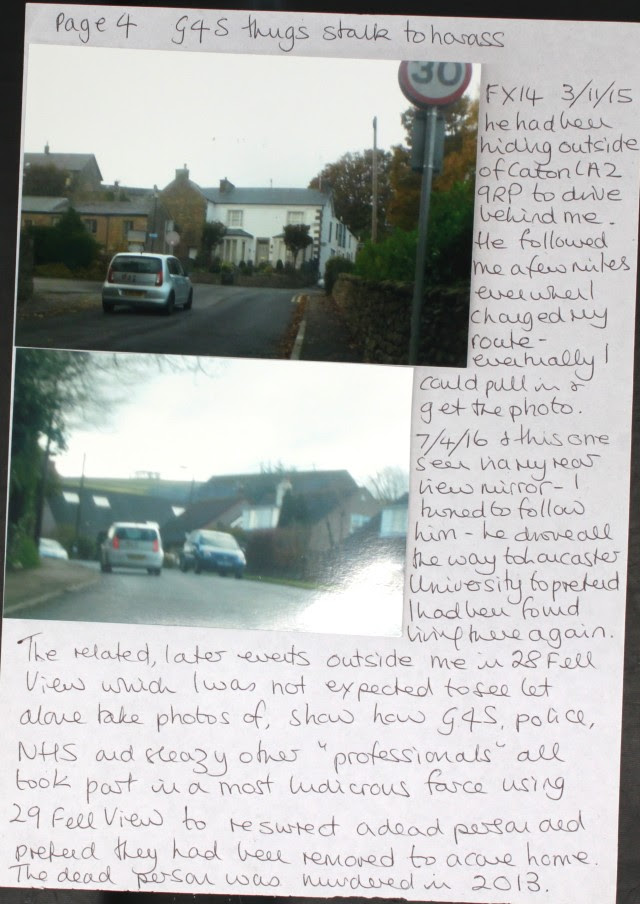 Page 4 G4S thugs stalk to harass
30
FX14 3/11/15
he had been
hiding outside
of Caton LA2
9RP to drive
behind me.
He followed
me a few miles
even when I
changed my
route -
eventually I
could pull in &
get the photo.
7/4/16 & this one
seen via my rear
view mirror - I
turned to follow
him - he drove all
the way to Lancaster
University to pretend
I had been found
living there again.
The related, later events outside me in 28 Fell
View which I was not expected to see let
alone take photos of, show how G4S, police,
NHS and sleazy other "professionals" all
took part in a most ludicrous farce using
29 Fell View to resurrect a dead person and
pretend they had been removed to a care home.
The dead person was murdered in 2013.